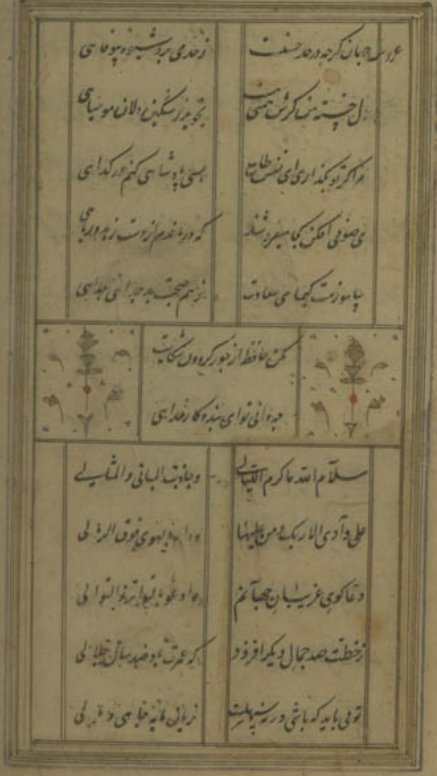 عروس جهان گرچه در حد حسنست
ز حد می برد شیوه بیوفایی
دل خسته من گرش همتی هست
نجوید ز سنگین دلان مومیایی
مرا گر تو بگذاری ای نفس طامع
بسی پادشاهی کنم در گدایی
می صوفی افکن کجا میفروشند
که در مانده‌ام از دست زهد ریایی
بیاموزمت کیمیای سعادت
ز هم صحبت بد جدایی جدایی
مکن حافظ از جور گردون شکایت
چه دانی تو ای بنده کار خدایی
سلام الله ما کر اللیالی
و جاوبت المثانی والمثالی
علی وادی الاراک و من علیها
و دار باللوی فوق الرمالی
دعاگوی غریبان جهانم
و ادعو بالتواتر والتوالی
ز خطت صد جمال دیگر افزود
که عمرت باد صد سال جلالی
تو می باید که باشی ورنه سهلست
زیان مایه جاهی و مالی